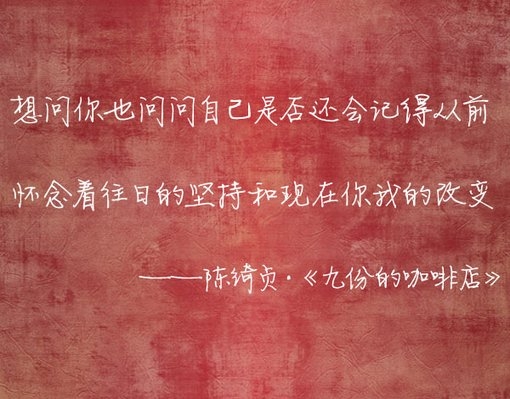 想问你也问问自己是否还会记得从前
怀念着往日的坚持和现在你我的改变
——陈绮贞·《九份的咖啡店》